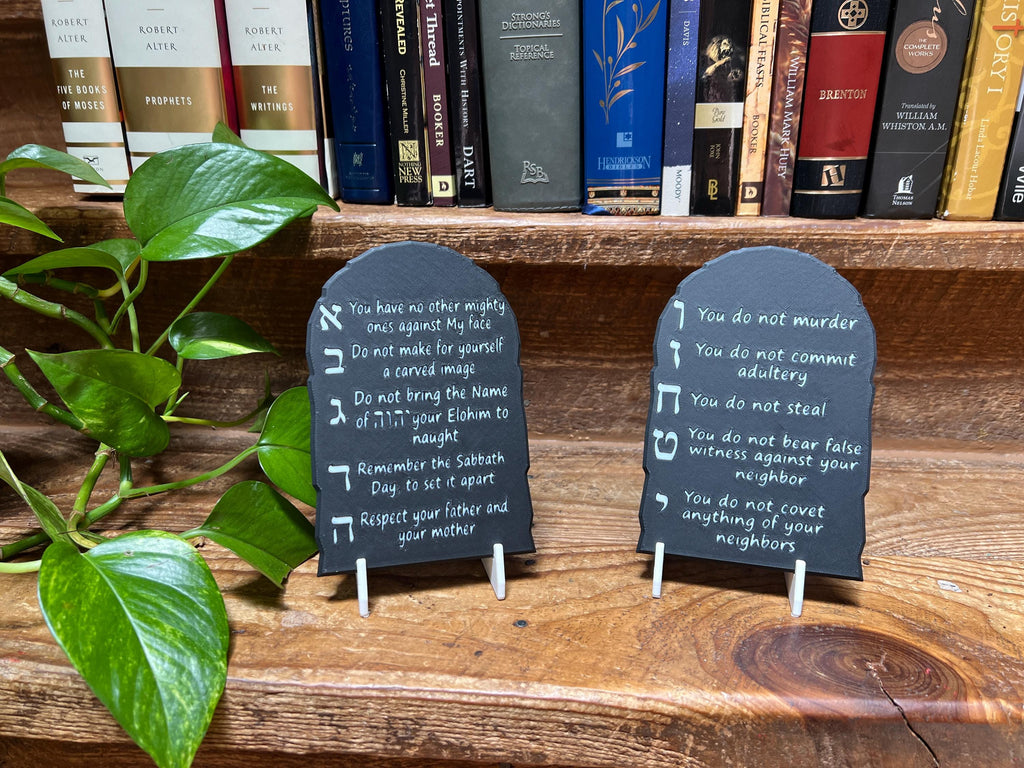 ROBERT
ALTER
THE
FIVE BOOKS
OF MOSES
ROBERT
ALTER
PROPHETS
ROBERT
ALTER
THE
WRITINGS
REVEALED
CHRISTINE MILLER
NOTHING
NEW
PRESS
Thread
BOOKER
APPOINTMENTS WITH HISTORY
DART
STRONG'S
DICTIONARIES
TOPICAL
REFERENCE
RSB
HENDRICKSON
BIBLES
DAVIS
MOODY
Pure
Gold
JOHN FOX
BIBLICAL FEASTS
BOOKER
WILLIAM MARK HUEY
BRENTON
H
THE
COMPLETE
WORKS
Translated by
WILLIAM
WHISTON, A.M.
THOMAS
NELSON
Linda Lacour Hobar
א You have no other mighty
ones against My face
ב Do not make for yourself
a carved image
ג Do not bring the Name
of יהוה your Elohim to
naught
ד Remember the Sabbath
Day, to set it apart
ה Respect your father and
your mother
ו You do not murder
ז You do not commit
adultery
ח You do not steal
ט You do not bear false
witness against your
neighbor
י You do not covet
anything of your
neighbors